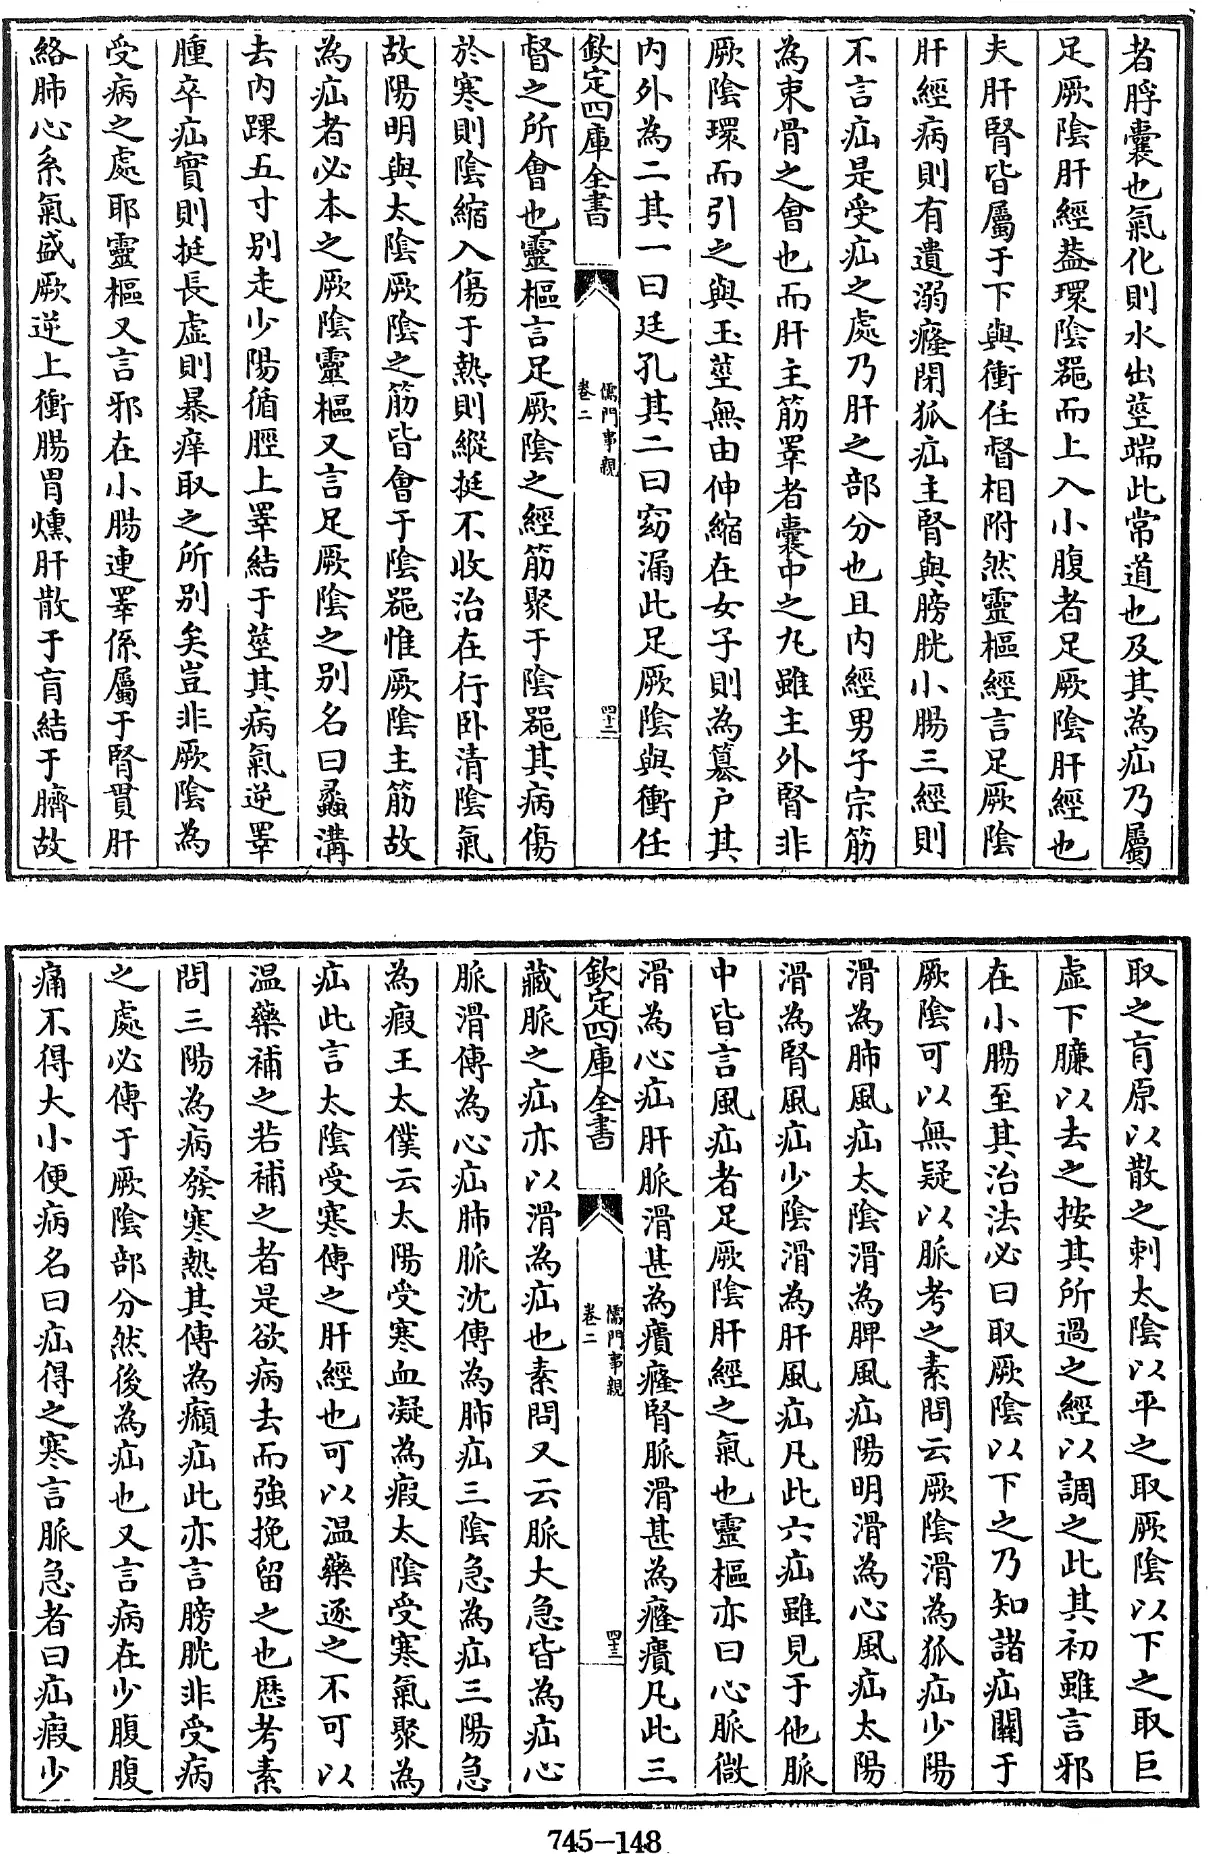 者脬囊也氣化則水出莖端此常道也及其為疝乃屬
足厥陰肝經葢環陰器而上入小腹者足厥陰肝經也
夫肝腎皆屬于下與衝任督相附然靈樞經言足厥陰
肝經病則有遺溺癃閉狐疝主腎與膀胱小腸三經則
不言疝是受疝之處乃肝之部分也且內經男子宗筋
為束骨之會也而肝主筋睪者囊中之丸雖主外腎非
厥陰環而引之與玉莖無由伸縮在女子則為篡户其
内外為二其一曰廷孔其二曰窈漏此足厥陰與衝任
欽定四庫全書
儒門事親
卷二
四十二
督之所會也靈樞言足厥陰之經筋聚于陰器其病傷
於寒則陰縮入傷于熱則縱挺不收治在行卧清陰氣
故陽明與太陰厥陰之筋皆會于陰器惟厥陰主筋故
為疝者必本之厥陰靈樞又言足厥陰之别名曰蠡溝
去内踝五寸别走少陽循脛上睪結于莖其病氣逆睪
腫卒疝實則挺長虛則暴痒取之所别矣豈非厥陰為
受病之處耶靈樞又言邪在小腸連睪係屬于腎貫肝
絡肺心系氣盛厥逆上衝腸胃燻肝散于肓結于臍故
取之肓原以散之刺太陰以平之取厥陰以下之取巨
虛下臁以去之按其所過之經以調之此其初雖言邪
在小腸至其治法必曰取厥陰以下之乃知諸疝關于
厥陰可以無疑以脈考之素問云厥陰滑為狐疝少陽
滑為肺風疝太陰滑為脾風疝陽明滑為心風疝太陽
滑為腎風疝少陰滑為肝風疝凡此六疝雖見于他脈
中皆言風疝者足厥陰肝經之氣也靈樞亦曰心脈微
滑為心疝肝脈滑甚為㿉癃腎脈滑甚為癃㿉凡此三
欽定四庫全書
儒門事親
卷二
四十三
藏脈之疝亦以滑為疝也素問又云脈大急皆為疝心
脈滑傳為心疝肺脈沈傳為肺疝三陰急為疝三陽急
為瘕王太僕云太陽受寒血凝為瘕太陰受寒氣聚為
疝此言太陰受寒傳之肝經也可以温藥逐之不可以
温藥補之若補之者是欲病去而強挽留之也歷考素
問三陽為病發寒熱其傳為㿗疝此亦言膀胱非受病
之處必傳于厥陰部分然後為疝也又言病在少腹腹
痛不得大小便病名曰疝得之寒言脈急者曰疝瘕少
745-148